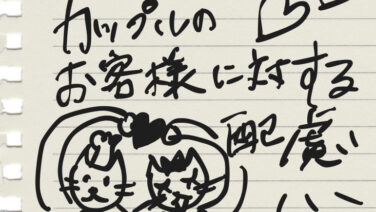 カップルの
お客様に対する
配慮い